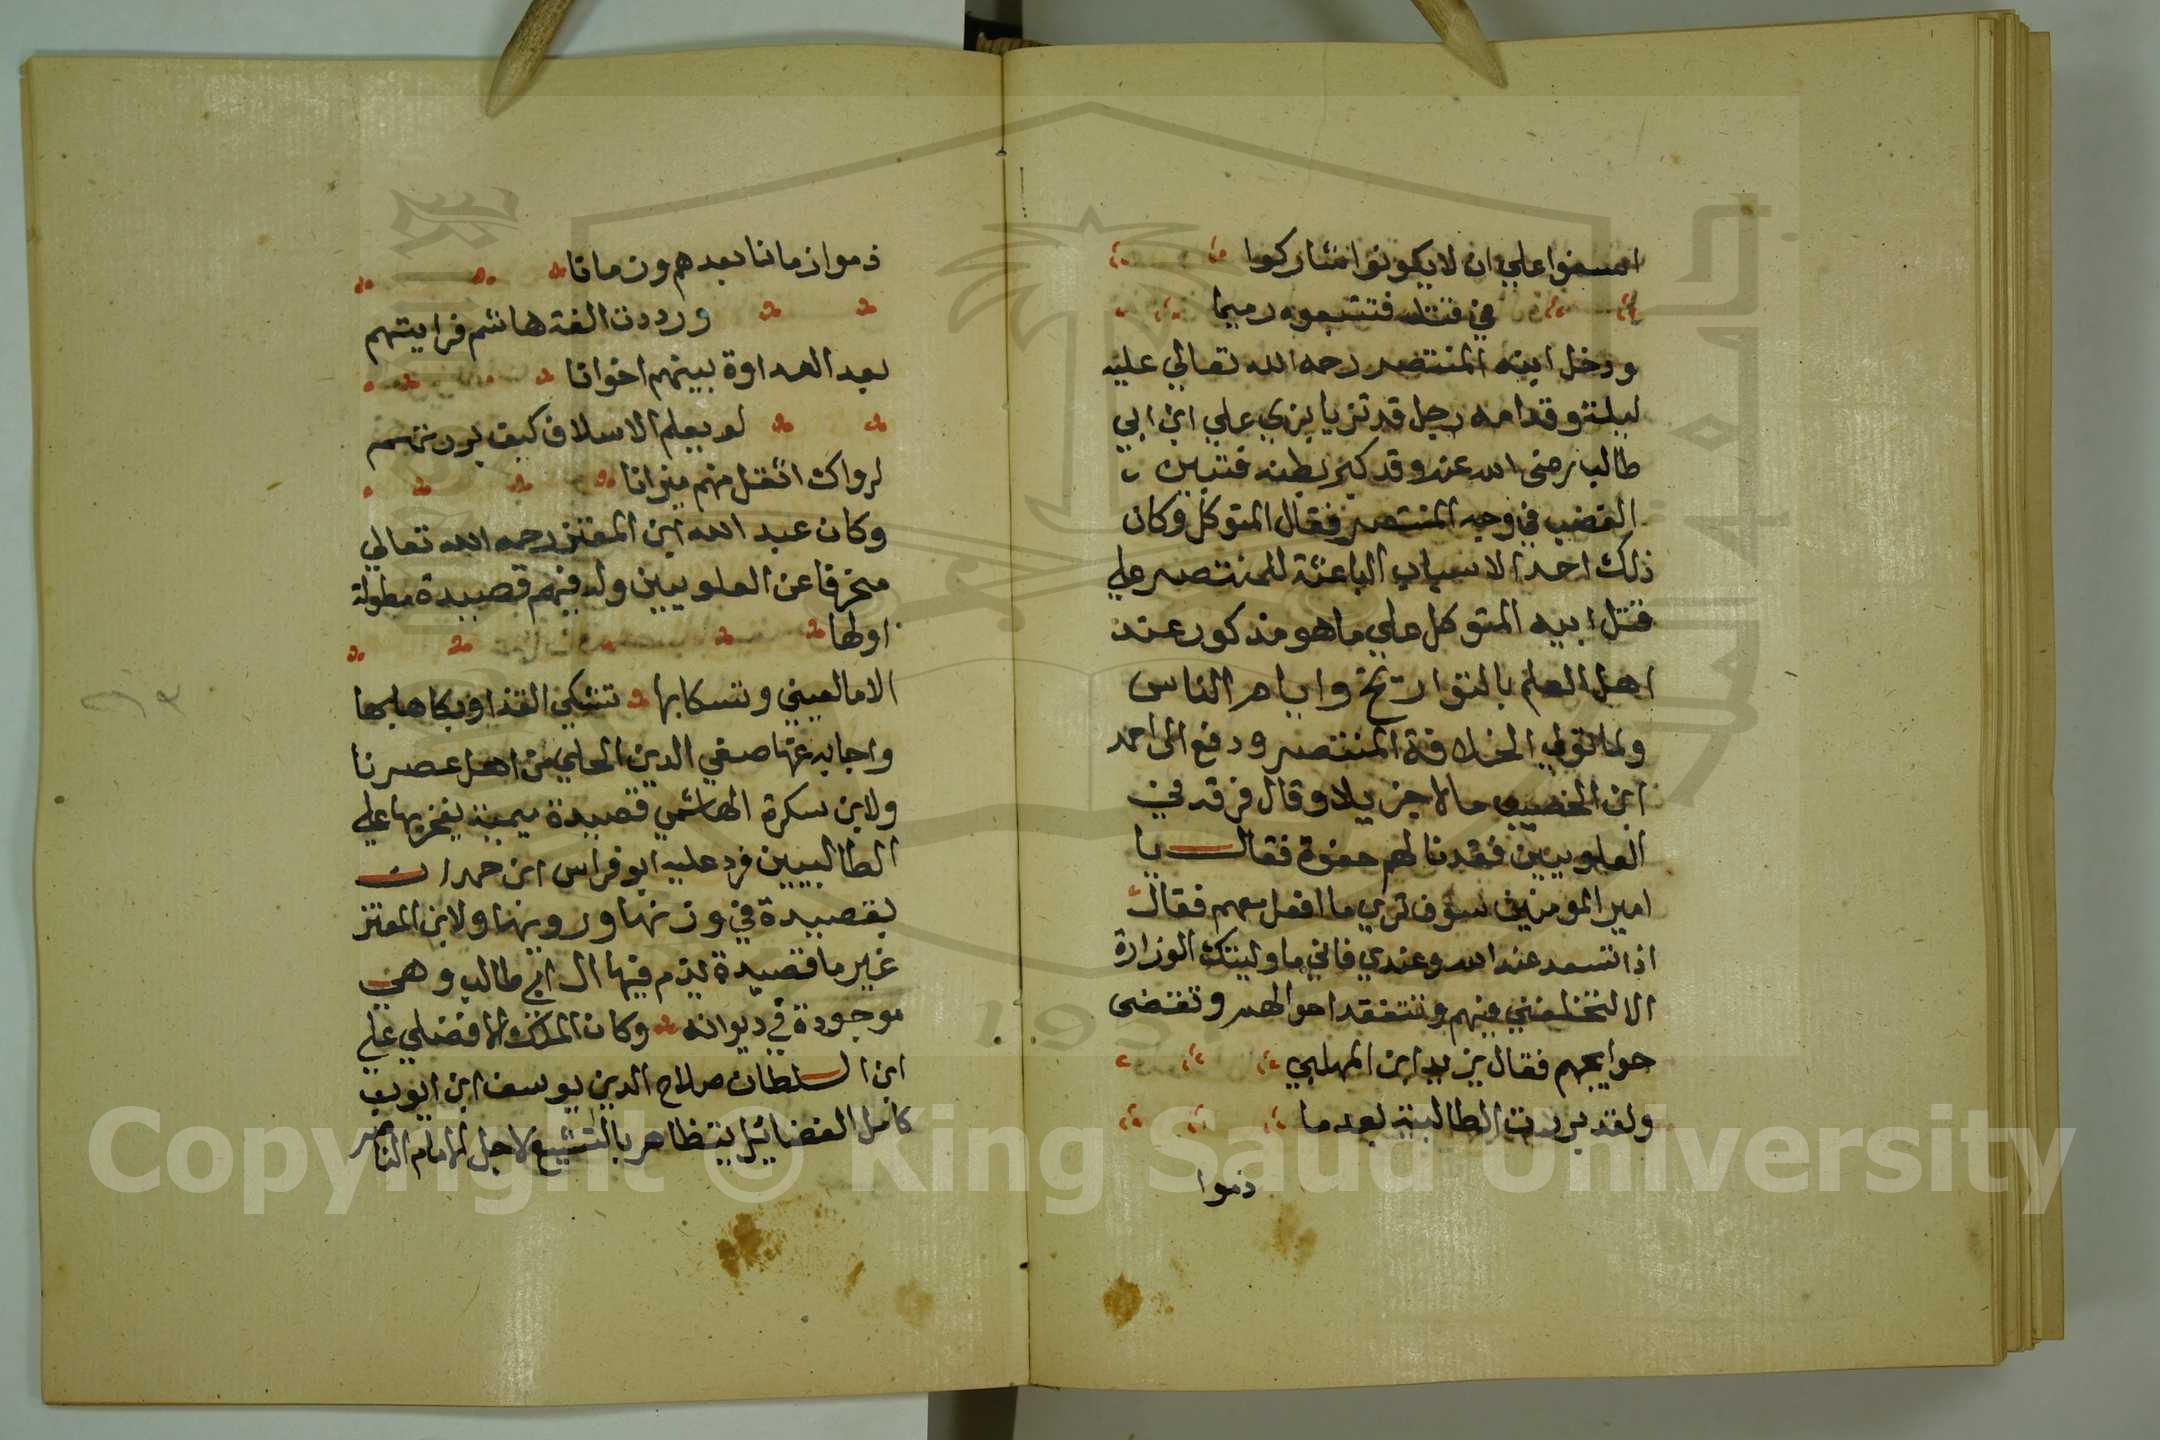 اسفوا علي ان لا يكونوا شاركوا
في قتله فتتبعوه رميما
ودخل ابنه المنتصر رحمه الله تعالي عليه
ليلة وقدامه رجل قد تزيا بزي علي ابن ابي
طالب رضى الله عنه وقد كبر بطنه فتبين
الغضب في وجه المنتصر فقال المتوكل وكان
ذلك احد الاسباب الباعثة للمنتصر علي
قتل ابيه المتوكل علي ما هو مذكور عند
اهل العلم بالتواريخ وايام الناس
ولما تولي الخلافة المنتصر ودفع الى احمد
ابن الخصيب مالا جزيلا وقال فرقه في
العلويين فقد نالهم جفوة فقال يا
امير المومنين سوف تري ما افعل معهم فقال
اذا تسعد عند الله وعندي فاني ما وليتك الوزارة
الا لتخلفني فيهم وتتفقد احوالهم وتقضى
حوايجهم فقال يزيد ابن المهلبي
ولقد بررت الطالبية بعد ما
ذموا
ذموا زمانا بعدهم وزمانا
ورددت الفة هاشم فرايتهم
بعد العداوة بينهم اخوانا
لو يعلم الاسلاف كيف بررتهم
لرواك اثقل منهم ميزانا
وكان عبد الله ابن المعتز رحمه الله تعالي
منحرفا عن العلويين وله فيهم قصيدة مطولة
اولها
الا ما لعيني وتسكابها تشكي القذا وبكاها بها
واجابه عنها صفي الدين الحلي من اهل عصرنا
ولابن سكرة الهاشمي قصيدة ميمية يفخر بها علي
الطالبيين فرد عليه ابو فراس ابن حمدان
بقصيدة في وزنها ورويها ولابن المعتز
غير ما قصيدة يذم فيها ال ابي طالب وهي
موجودة في ديوانه وكان الملك الافضلي علي
ابن السلطان صلاح الدين يوسف ابن ايوب
كامل الفضايل يتظاهر بالتشيع لاجل الامام الناصر
Copyright © King Saud University